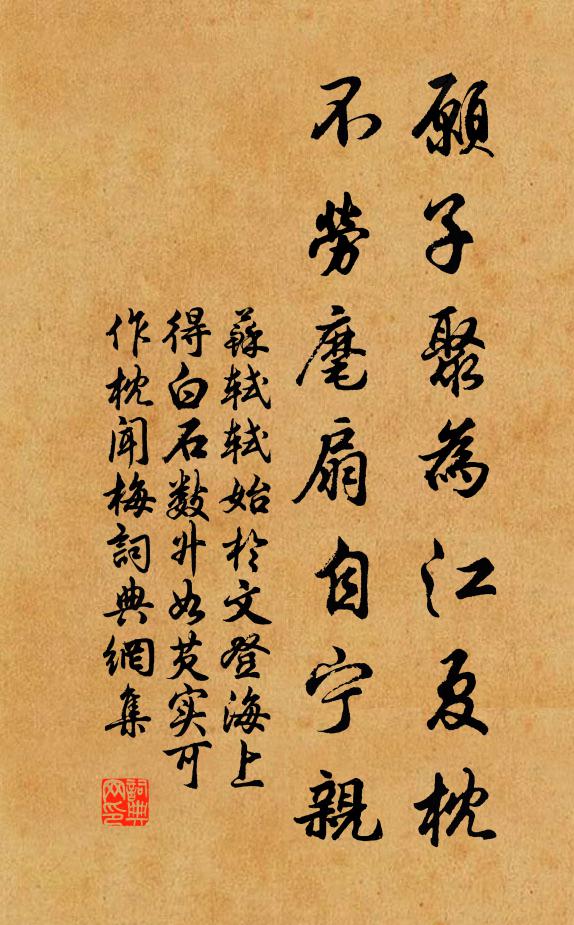 願子聚為江夏枕
不勞麾扇自宁親
蘇軾軾始於文登海上
得白石數升如芡实可
作枕聞梅詞典網集
詞典網印